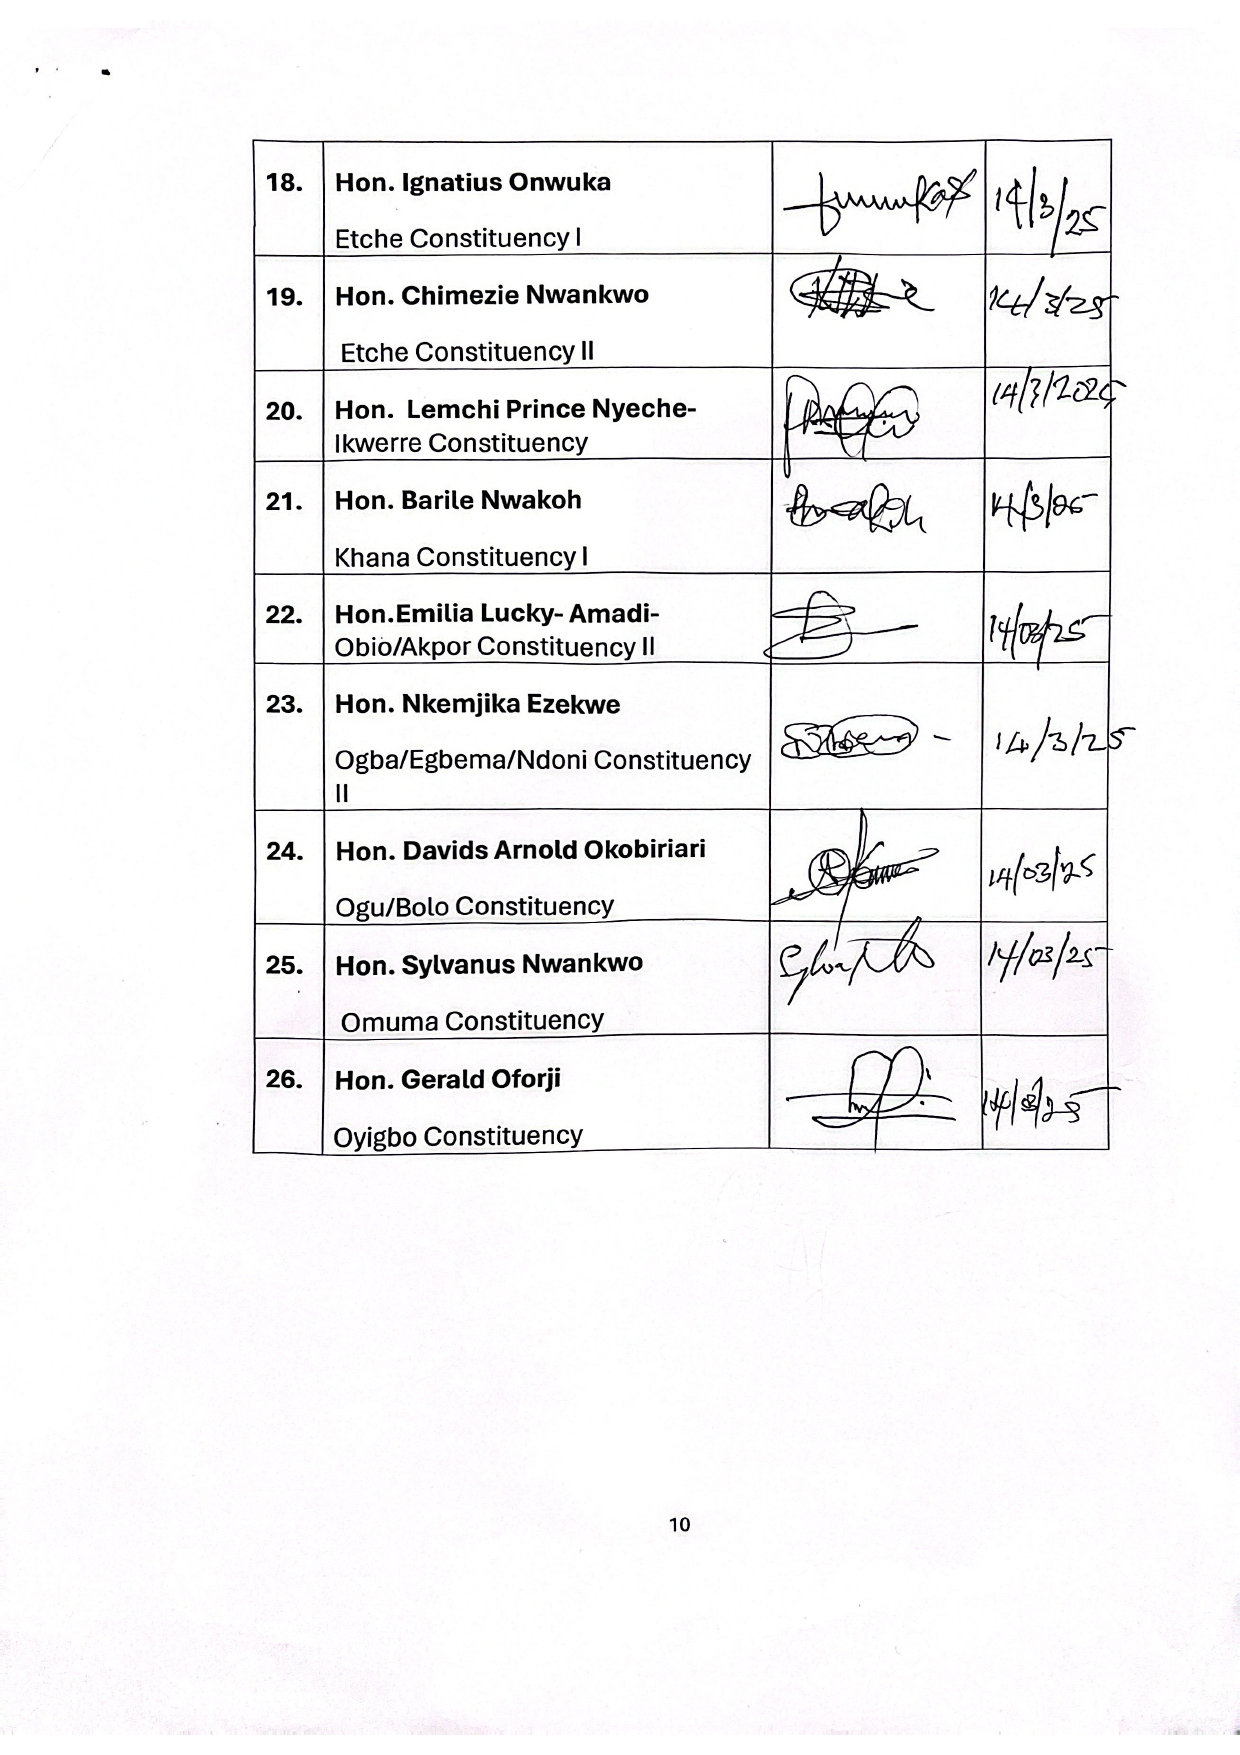 18. Hon. Ignatius Onwuka 14/3/25
Etche Constituency I
19. Hon. Chimezie Nwankwo 14/3/25
Etche Constituency II
20. Hon. Lemchi Prince Nyeche- 14/3/2025
Ikwerre Constituency
21. Hon. Barile Nwakoh 14/3/25
Khana Constituency I
22. Hon.Emilia Lucky- Amadi- 14/03/25
Obio/Akpor Constituency II
23. Hon. Nkemjika Ezekwe 14/3/25
Ogba/Egbema/Ndoni Constituency
II
24. Hon. Davids Arnold Okobiriari 14/03/25
Ogu/Bolo Constituency
25. Hon. Sylvanus Nwankwo 14/03/25
Omuma Constituency
26. Hon. Gerald Oforji 14/03/25
Oyigbo Constituency
10